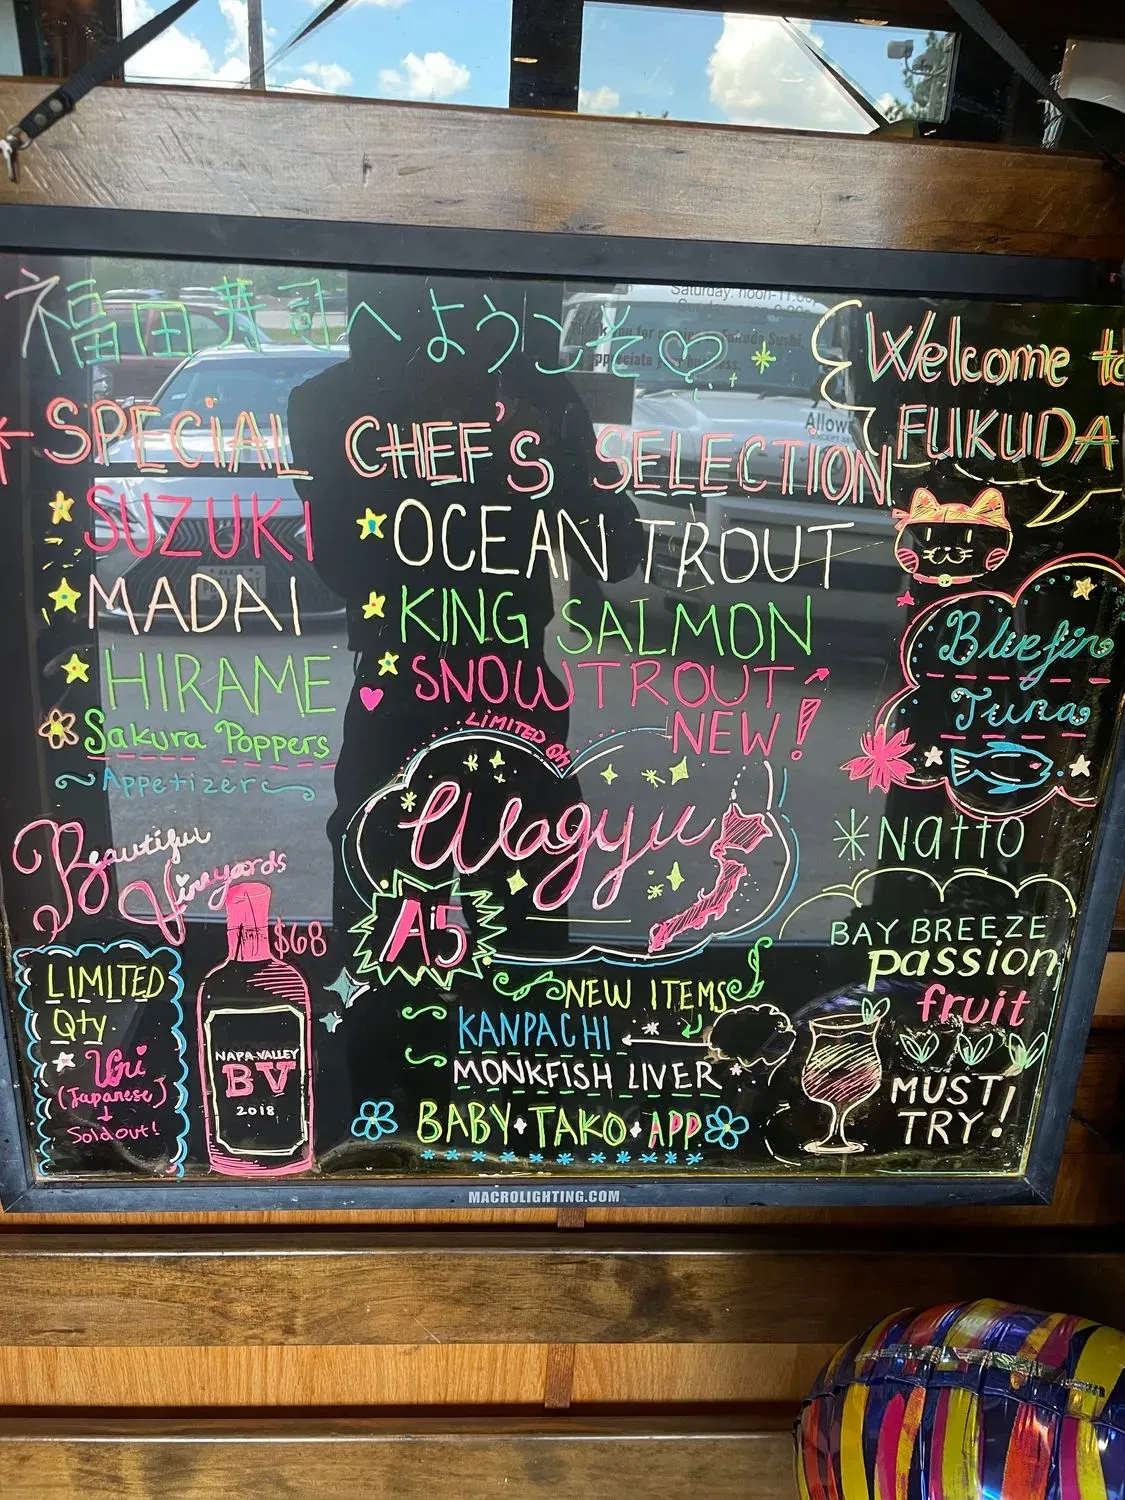 福田寿司へようこそ
Welcome to
FUKUDA
SPECIAL CHEF'S SELECTION
SUZUKI
MADAI
HIRAME
Sakura Poppers
~Appetizer~
OCEAN TROUT
KING SALMON
SNOWTROUT
NEW!
Bluefin
Tuna
LIMITED
Wagyu
A5
Natto
Beautiful
Vineyards
$68
NAPA VALLEY
BV
2018
LIMITED
Qty.
Uni
(Japanese)
↓
Sold out!
NEW ITEMS
KANPACHI
MONKFISH LIVER
BABY TAKO APP
BAY BREEZE
passion
fruit
MUST!
TRY
MACROLIGHTING.COM
Saturday: noon-11:00
Allow